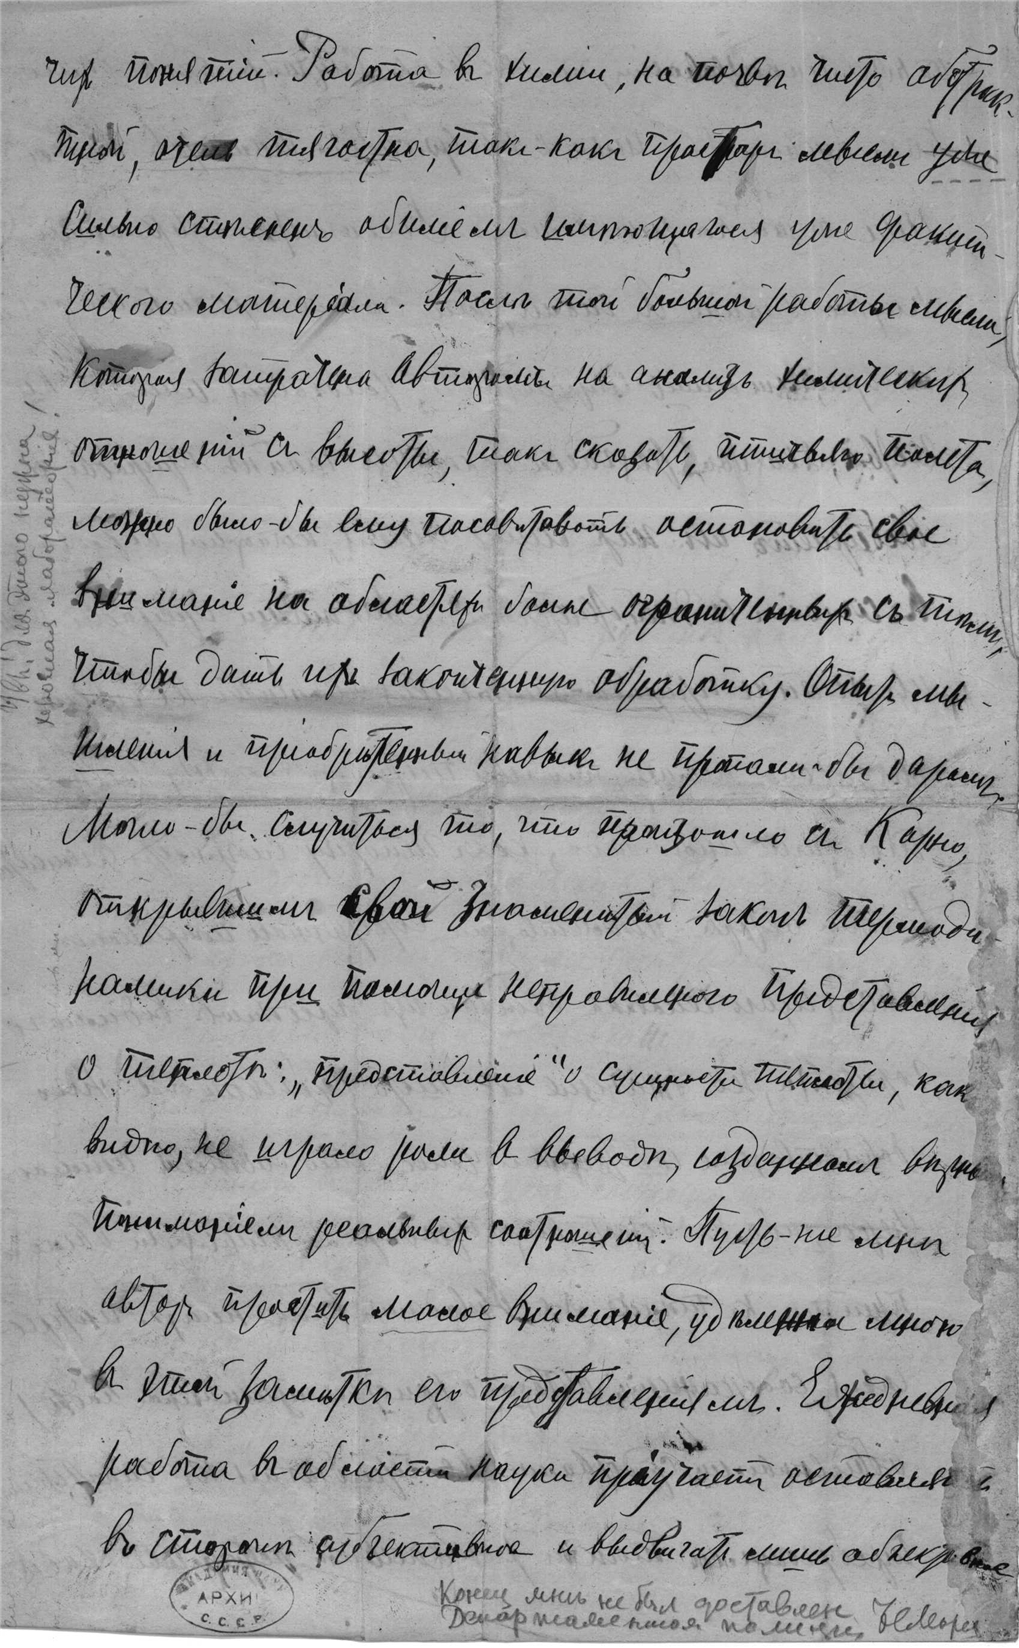 чих понятій. Работа въ химіи, на почвѣ чисто абстрак-
тной, очень тягостна, такъ-какъ просторъ мысли уже
сильно стѣсненъ обиліемъ имѣющагося уже факти-
ческого матеріала. Послѣ той большой работы мысли,
которая затрачена авторомъ на анализъ химическихъ
отношеній съ высоты, такъ сказать, птичьяго полета,
можно было-бы ему посовѣтовать остановить свое
вниманіе на областяхъ болѣе ограниченныхъ съ тѣмъ,
чтобы дать имъ законченную обработку. Опытъ мы-
шленія и пріобрѣтенный навыкъ не пропали-бы даромъ.
Могло-бы случиться то, что произошло съ Карно,
открывшимъ свой знаменитый законъ термоди-
намики при помощи неправильного представленія
о теплотѣ: „представленіе" о сущности теплоты, как
видно, не играло роли в выводѣ, созданномъ вѣрнымъ
пониманіемъ реальныхъ соотношеній. Пусть-же мнѣ
авторъ проститъ малое вниманіе, удѣленное мною
въ этой замѣткѣ его представленіямъ. Ежедневная
работа въ области науки пріучаетъ оставлять
въ сторонѣ субъективное и выдвигать лишь объективное
Конец мнѣ не был доставлен
Департаментом полиціи. Н Моро
Увы! Для этого нужна
хорошая лабораторія!
АКАДЕМИЯ НАУК
АРХИВ
С.С.С.Р.